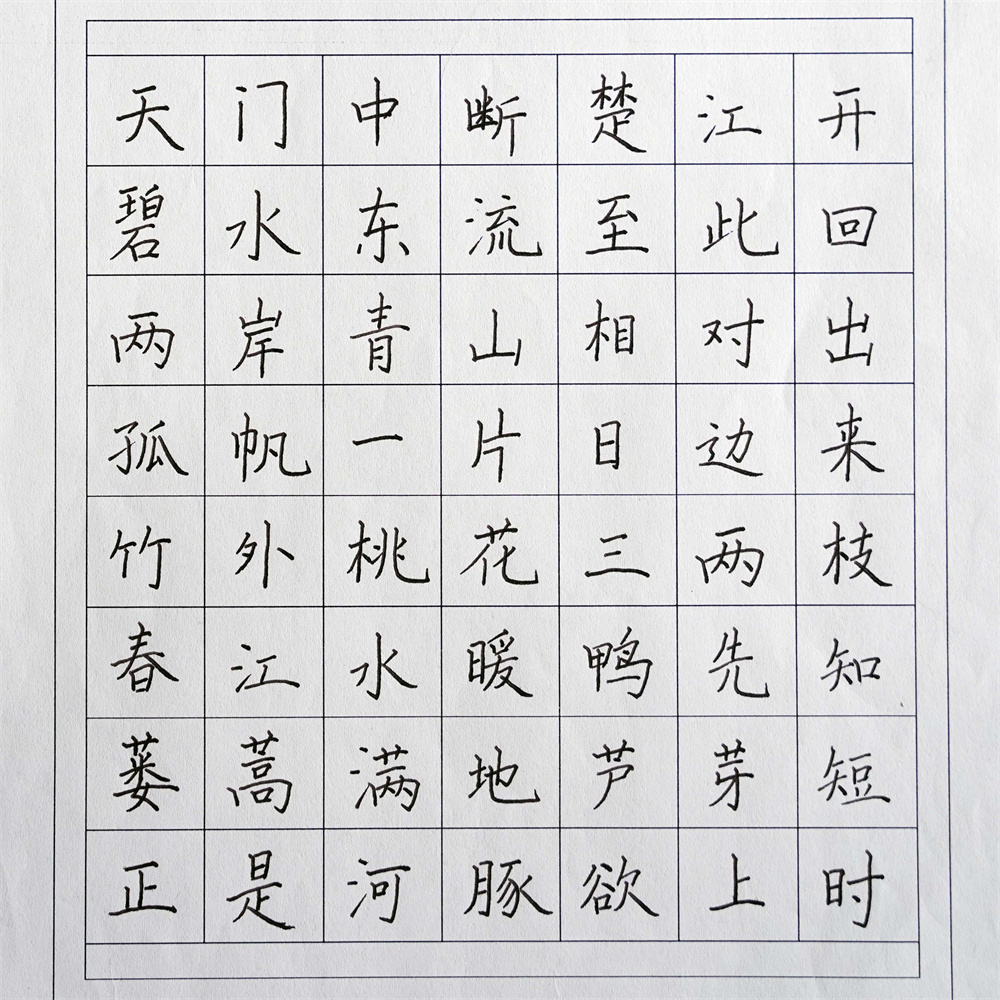 天门中断楚江开
碧水东流至此回
两岸青山相对出
孤帆一片日边来
竹外桃花三两枝
春江水暖鸭先知
蒌蒿满地芦芽短
正是河豚欲上时